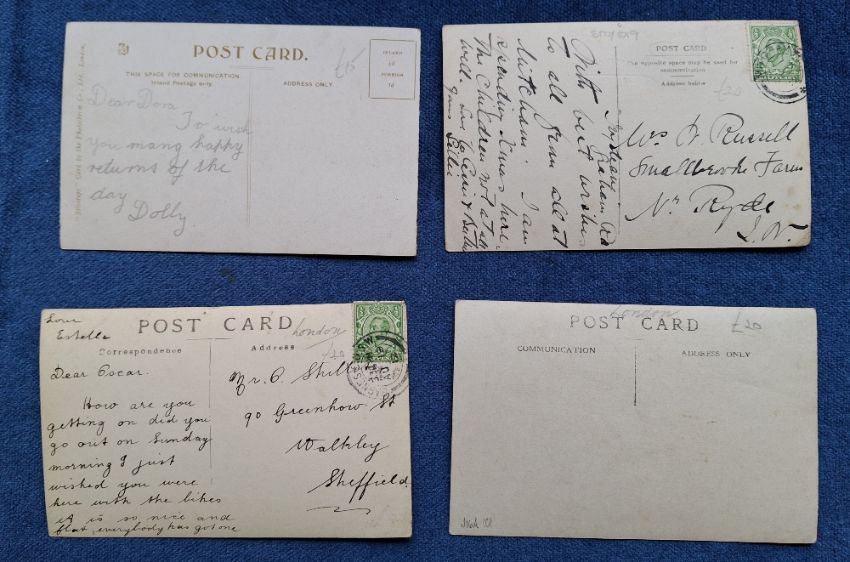 POST CARD.
£15
THIS SPACE FOR COMMUNICATION
Inland Postage only.
ADDRESS ONLY
INLAND
½d
FOREIGN
1d
Dear Dora
To wish
you many happy
returns of the
day
Dolly
POST CARD
The opposite space may be used for
communication
Address below
£20
Mrs Russell
Smallbrooke Farm
Nr Ryde
I.W.
With best wishes
to all from all at
Mitcham. I am
spending Xmas here
The Children not at all
well. love to
yours
POST CARD
Correspondence
Address
London
£20
Love
Estella
Dear Oscar.
How are you
getting on did you
go out on Sunday
morning I just
wished you were
here with the bikes
it is so nice and
flat, everybody has got one
Mr. O. Shill
90 Greenhow St
Walkley
Sheffield
London
POST CARD
£20
COMMUNICATION
ADDRESS ONLY